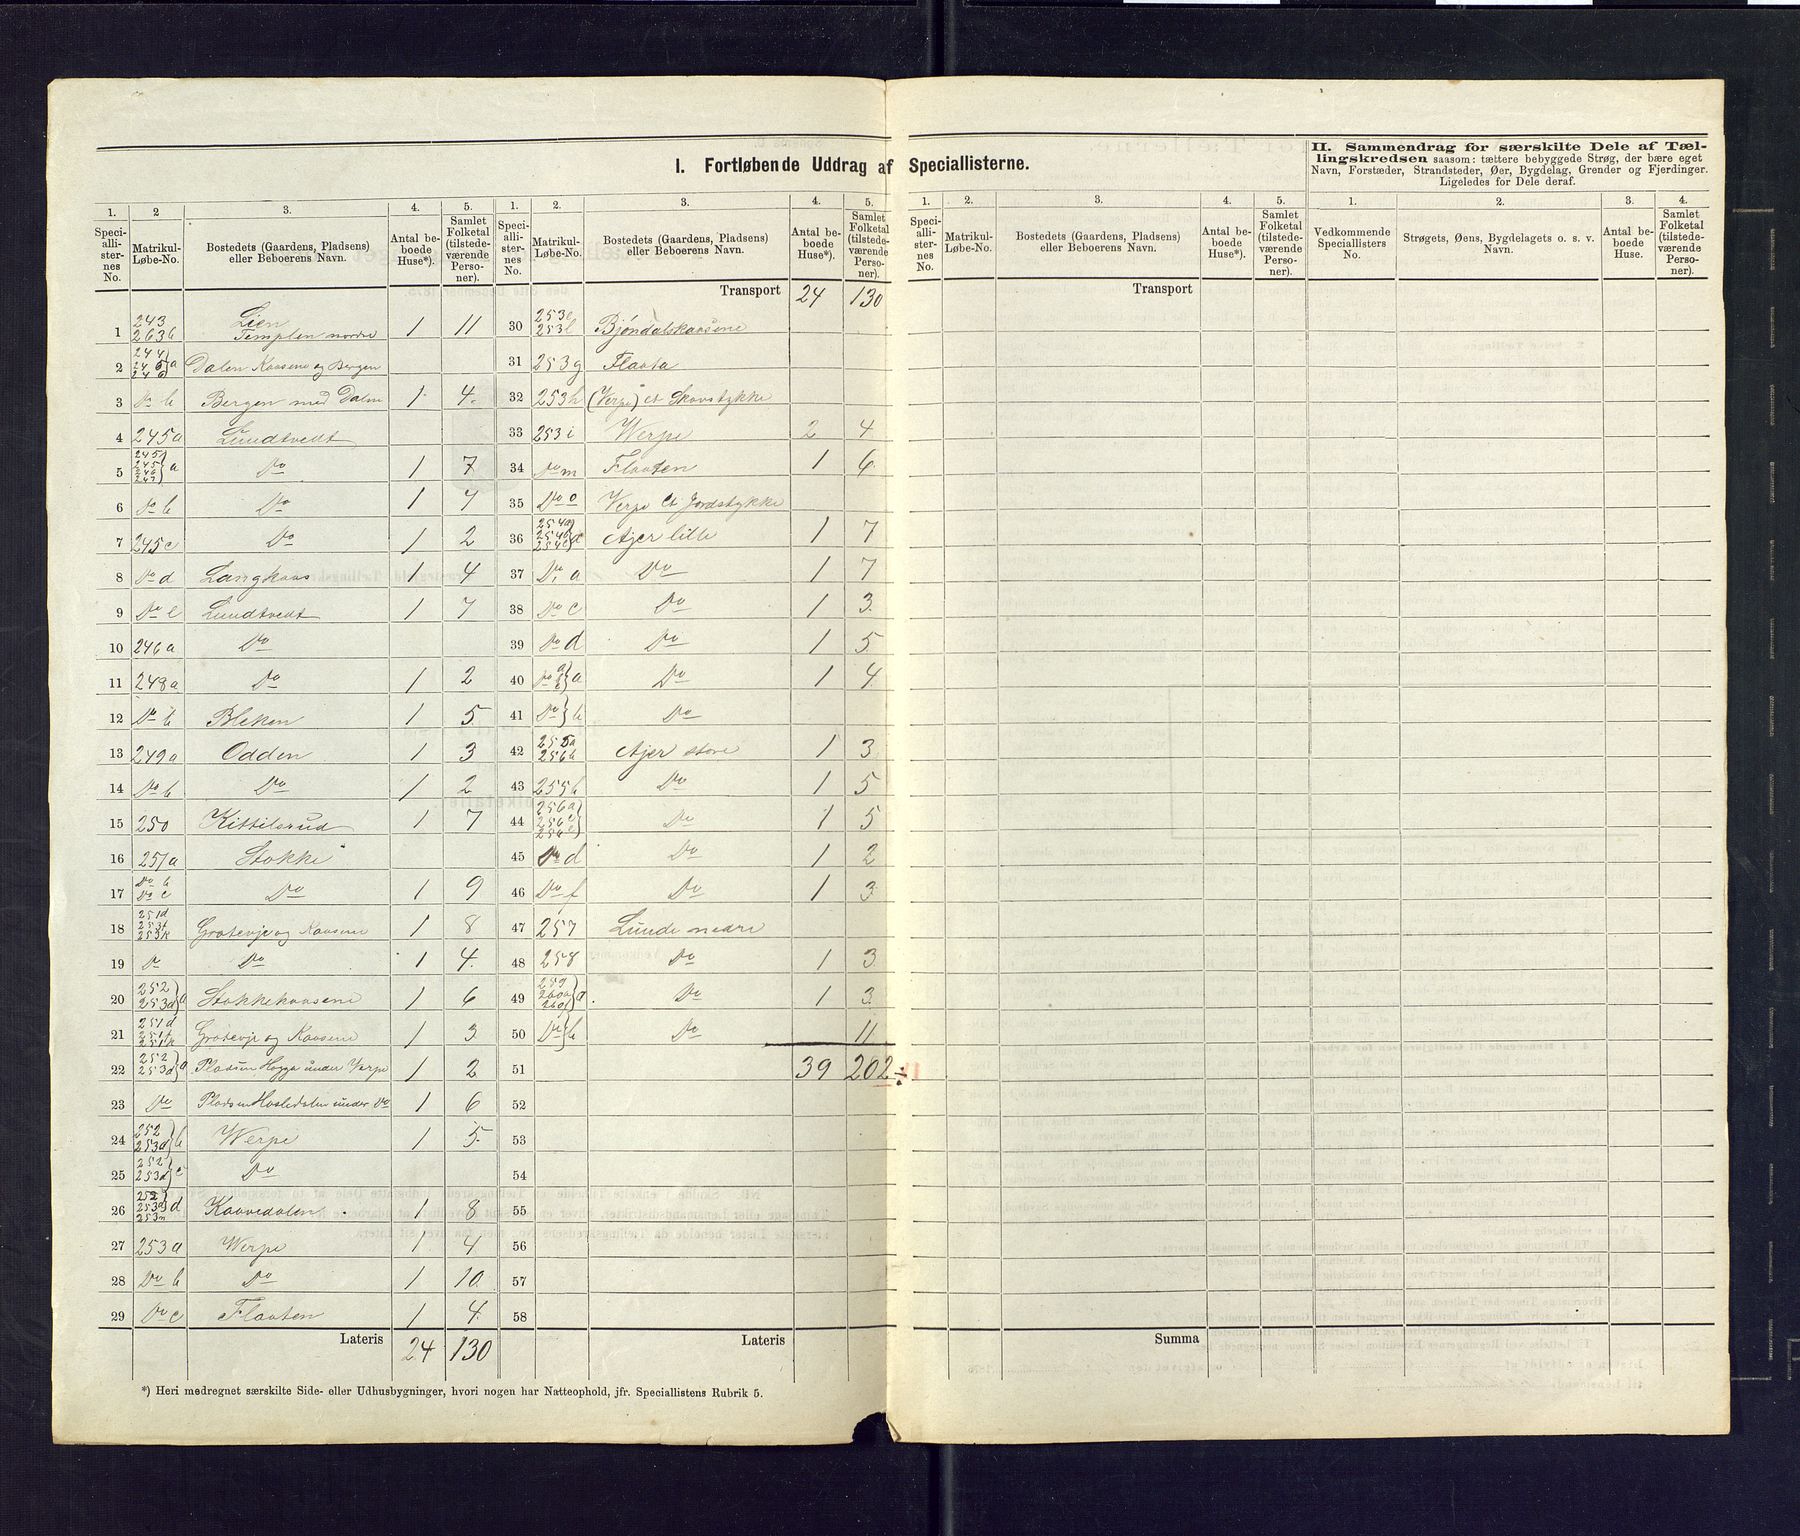 I. Fortløbende Uddrag af Speciallisterne.
II. Sammendrag for særskilte Dele af Tæl-
lingskredsen saasom: tættere bebyggede Strøg, der bære eget
Navn, Forstæder, Strandsteder, Øer, Bygdelag, Grender og Fjerdinger.
Ligeledes for Dele deraf.
1. 2 3. 4. 5.
Speciallisternes No. Matrikul-Løbe-No. Bostedets (Gaardens, Pladsens) eller Beboerens Navn. Antal beboede Huse*). Samlet Folketal (tilstedeværende Personer).
1 243 263b Lien Templen nordre 1 11
2 244 245 246 a Dalen Kaasene og Bergen
3 Do b Bergen med Dalen 1 4.
4 245a Lundtvedt
5 245 245 246 247 a Do 1 7
6 Do b Do 1 4
7 245c Do 1 2
8 Do d Langkaas 1 4
9 Do e Lundtvedt 1 7
10 246a Do
11 248a Do 1 2
12 Do b Bleken 1 5
13 249a Odden 1 3
14 Do b Do 1 2
15 250 Kittilsrud 1 7
16 251a Stokke
17 Do b Do c Do 1 9
18 251d 253f 253k Grotevje og Kaasene 1 8
19 Do Do 1 4.
20 252 253d a Stokkekaasene 1 6
21 251d 251f 251k Grotevje og Kaasene 1 3
22 252 253d a Pladsen Hogga under Verpe 1 2
23 Do Pladsen Hasledalen under Do 1 6
24 252 253d b Werpe 1 5
25 252 253d c Do
26 252 253d 253n d Kaavedalen 1 8
27 253a Werpe 1 4
28 Do b Do 1 10
29 Do c Flaaten 1 4.
Lateris 24 130
1. 2. 3. 4. 5.
Speciallisternes No. Matrikul-Løbe-No. Bostedets (Gaardens, Pladsens) eller Beboerens Navn. Antal beboede Huse*). Samlet Folketal (tilstedeværende Personer).
Transport 24 130
30 253e 253l Bjøndalskaasene
31 253g Flaata
32 253h (Verpe) et Skovstykke
33 253i Werpe 2 4
34 Do m Flaaten 1 6
35 Do o Verpe et Jordstykke
36 254a 254b 254c Ajer lille 1 7
37 Do, a Do 1 7
38 Do c Do 1 3
39 Do d Do 1 5
40 Do a Do 1 4
41 Do b Do
42 255a 256b Ajer store 1 3
43 255b Do 1 5
44 256a 256c 256e Do 1 5
45 Do d Do 1 2
46 Do f Do 1 3
47 257 Lunde nedre
48 258 Do 1 3
49 259 260a a Do 1 3
50 Do b Do 11
51 39 202
52
53
54
55
56
57
58
Lateris
1. 2. 3. 4. 5.
Speciallisternes No. Matrikul-Løbe-No. Bostedets (Gaardens, Pladsens) eller Beboerens Navn. Antal beboede Huse*). Samlet Folketal (tilstedeværende Personer).
Transport
Summa
1. 2. 3. 4.
Vedkommende Speciallisters No. Strøgets, Øens, Bygdelagets o. s. v. Navn. Antal beboede Huse. Samlet Folketal (tilstedeværende Personer).
*) Heri medregnet særskilte Side- eller Udhusbygninger, hvori nogen har Natteophold, jfr. Speciallistens Rubrik 5.